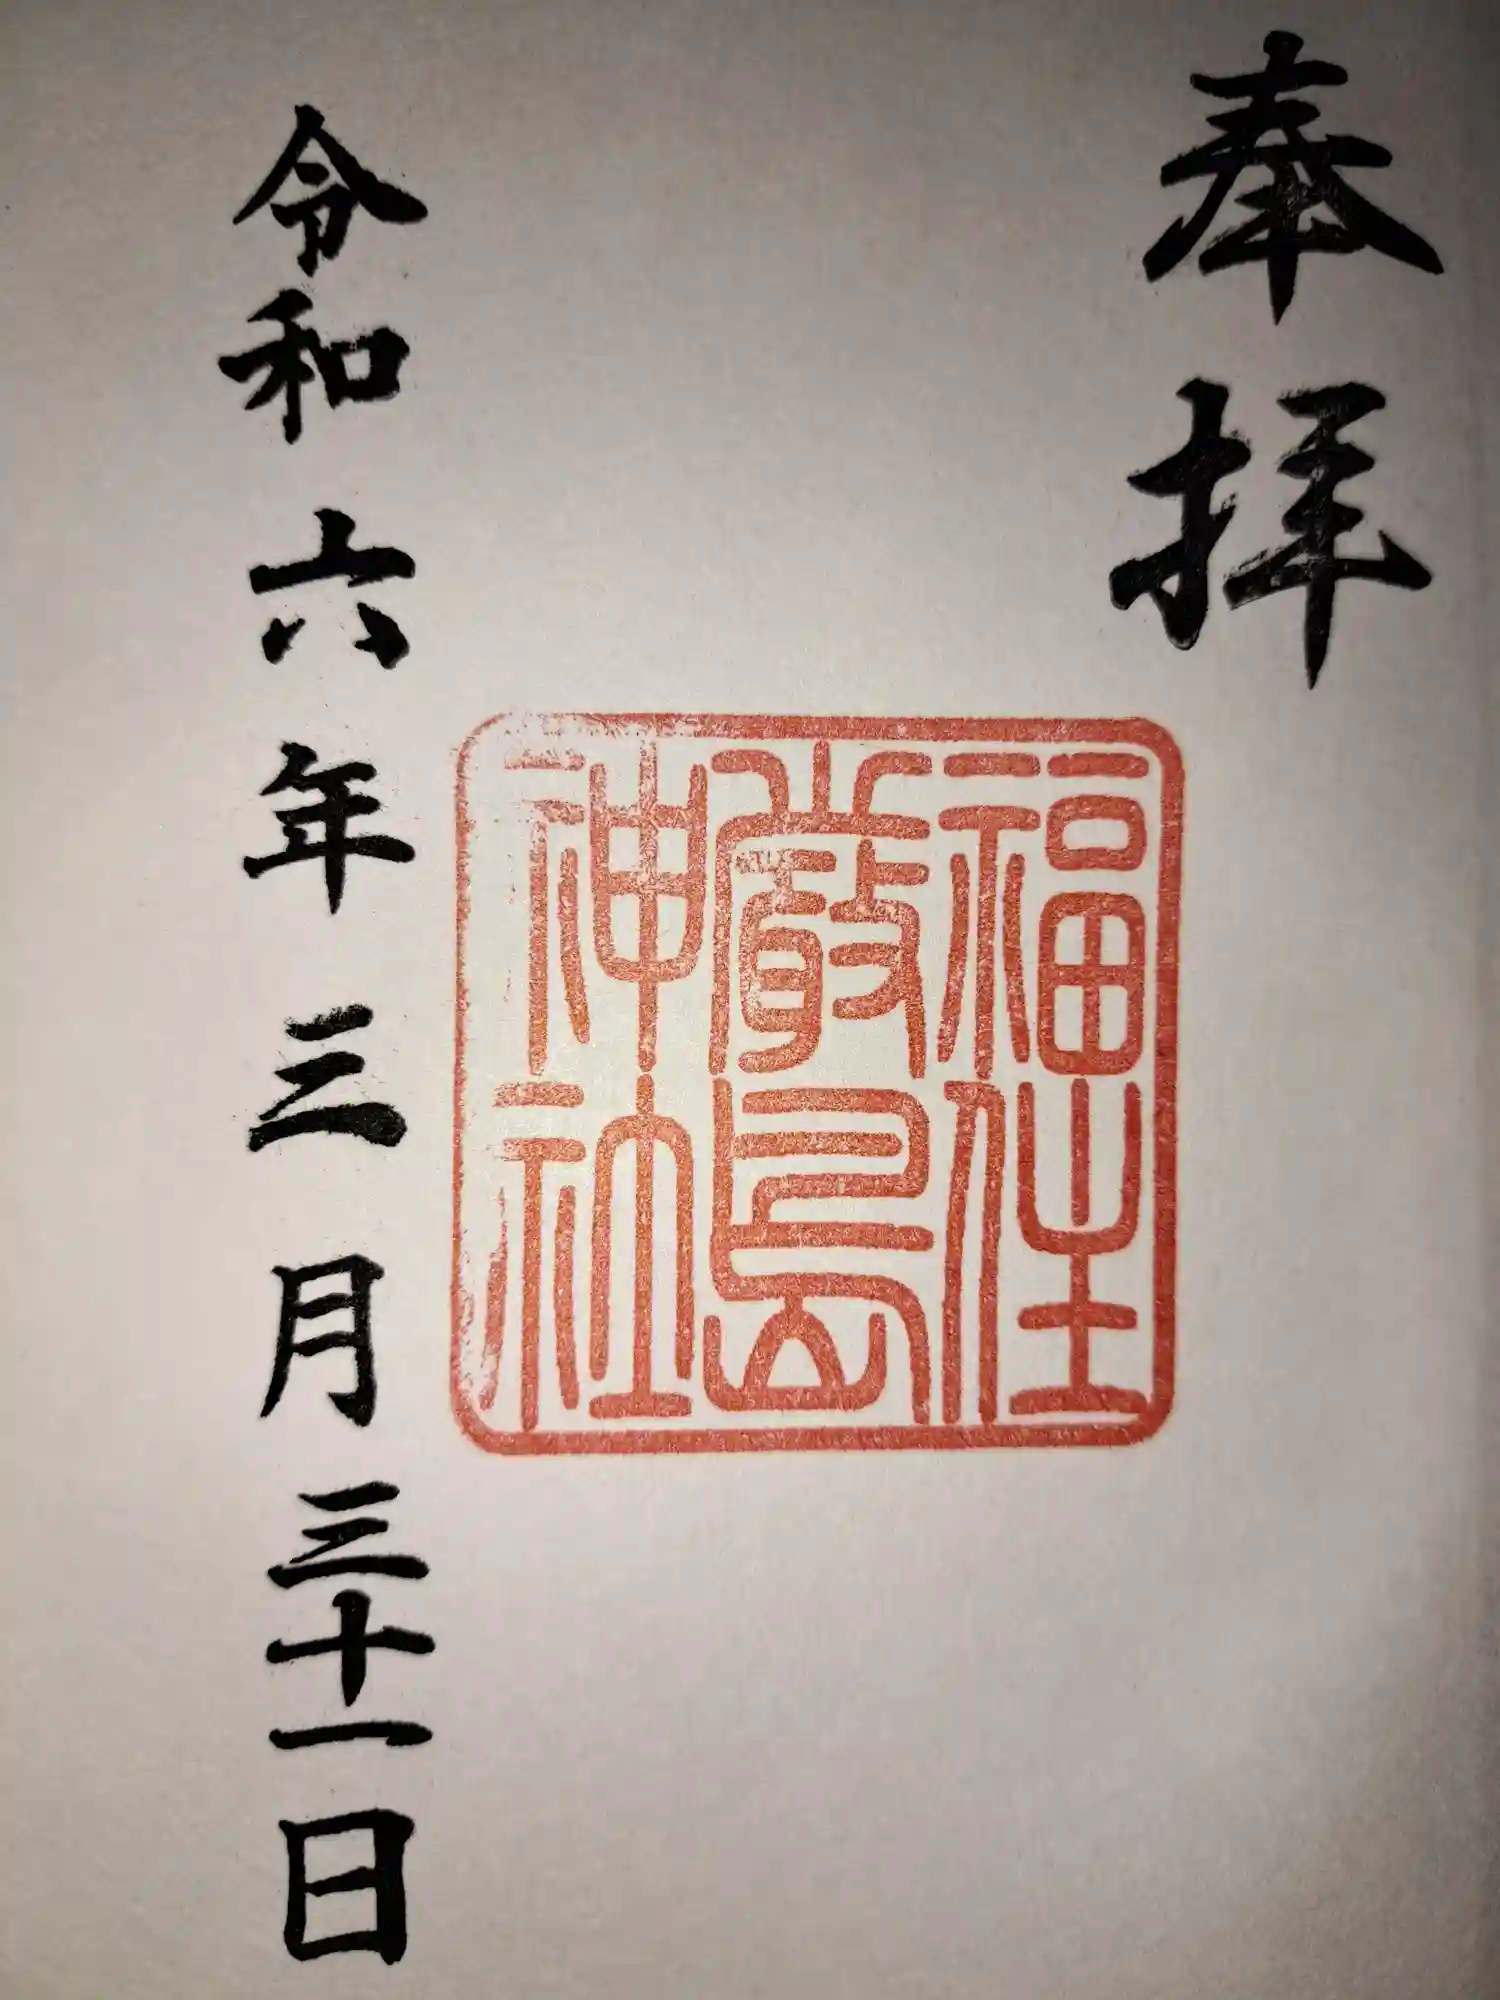 奉拝
福住
嚴島
神社
令和六年三月三十一日